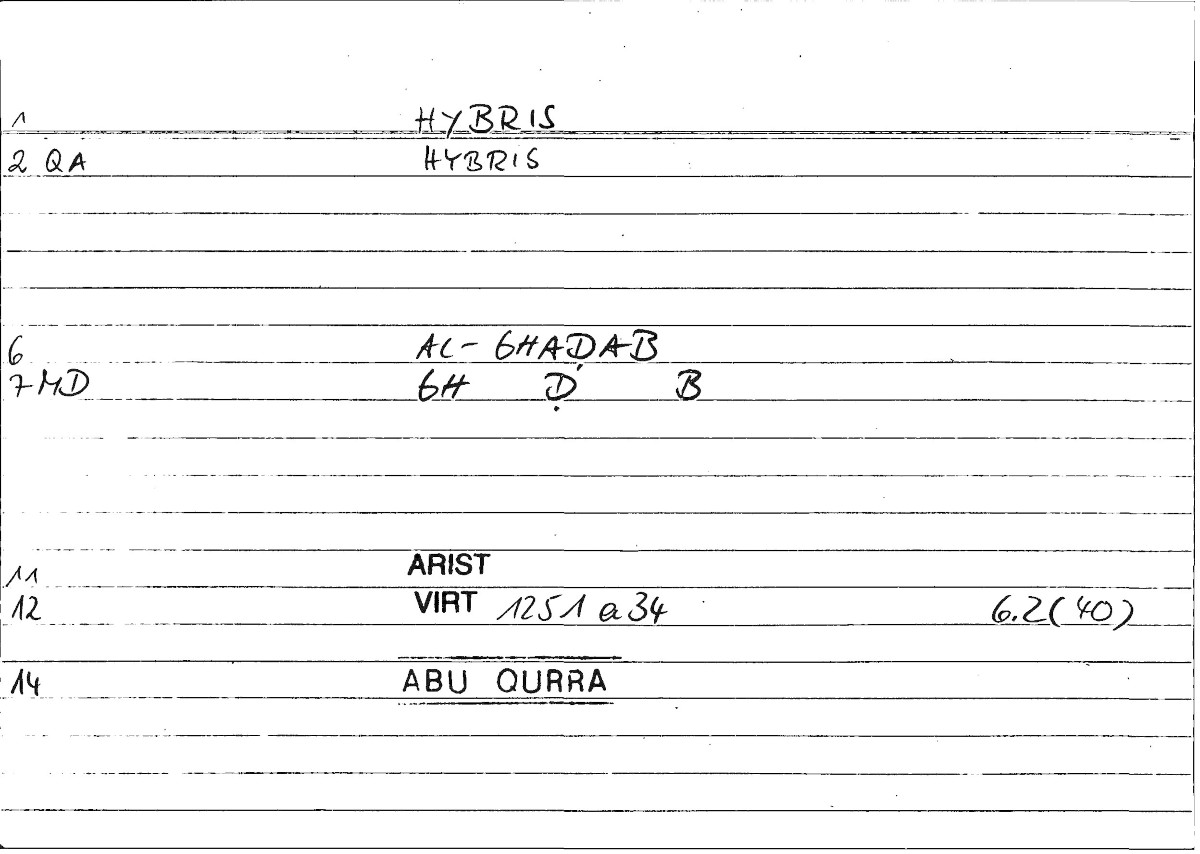 1 HYBRIS
2 QA HYBRIS
6 AL-GHAḌAB
7 MD GH Ḍ B
11 ARIST
12 VIRT 1251 a 34 6.2(40)
14 ABU QURRA